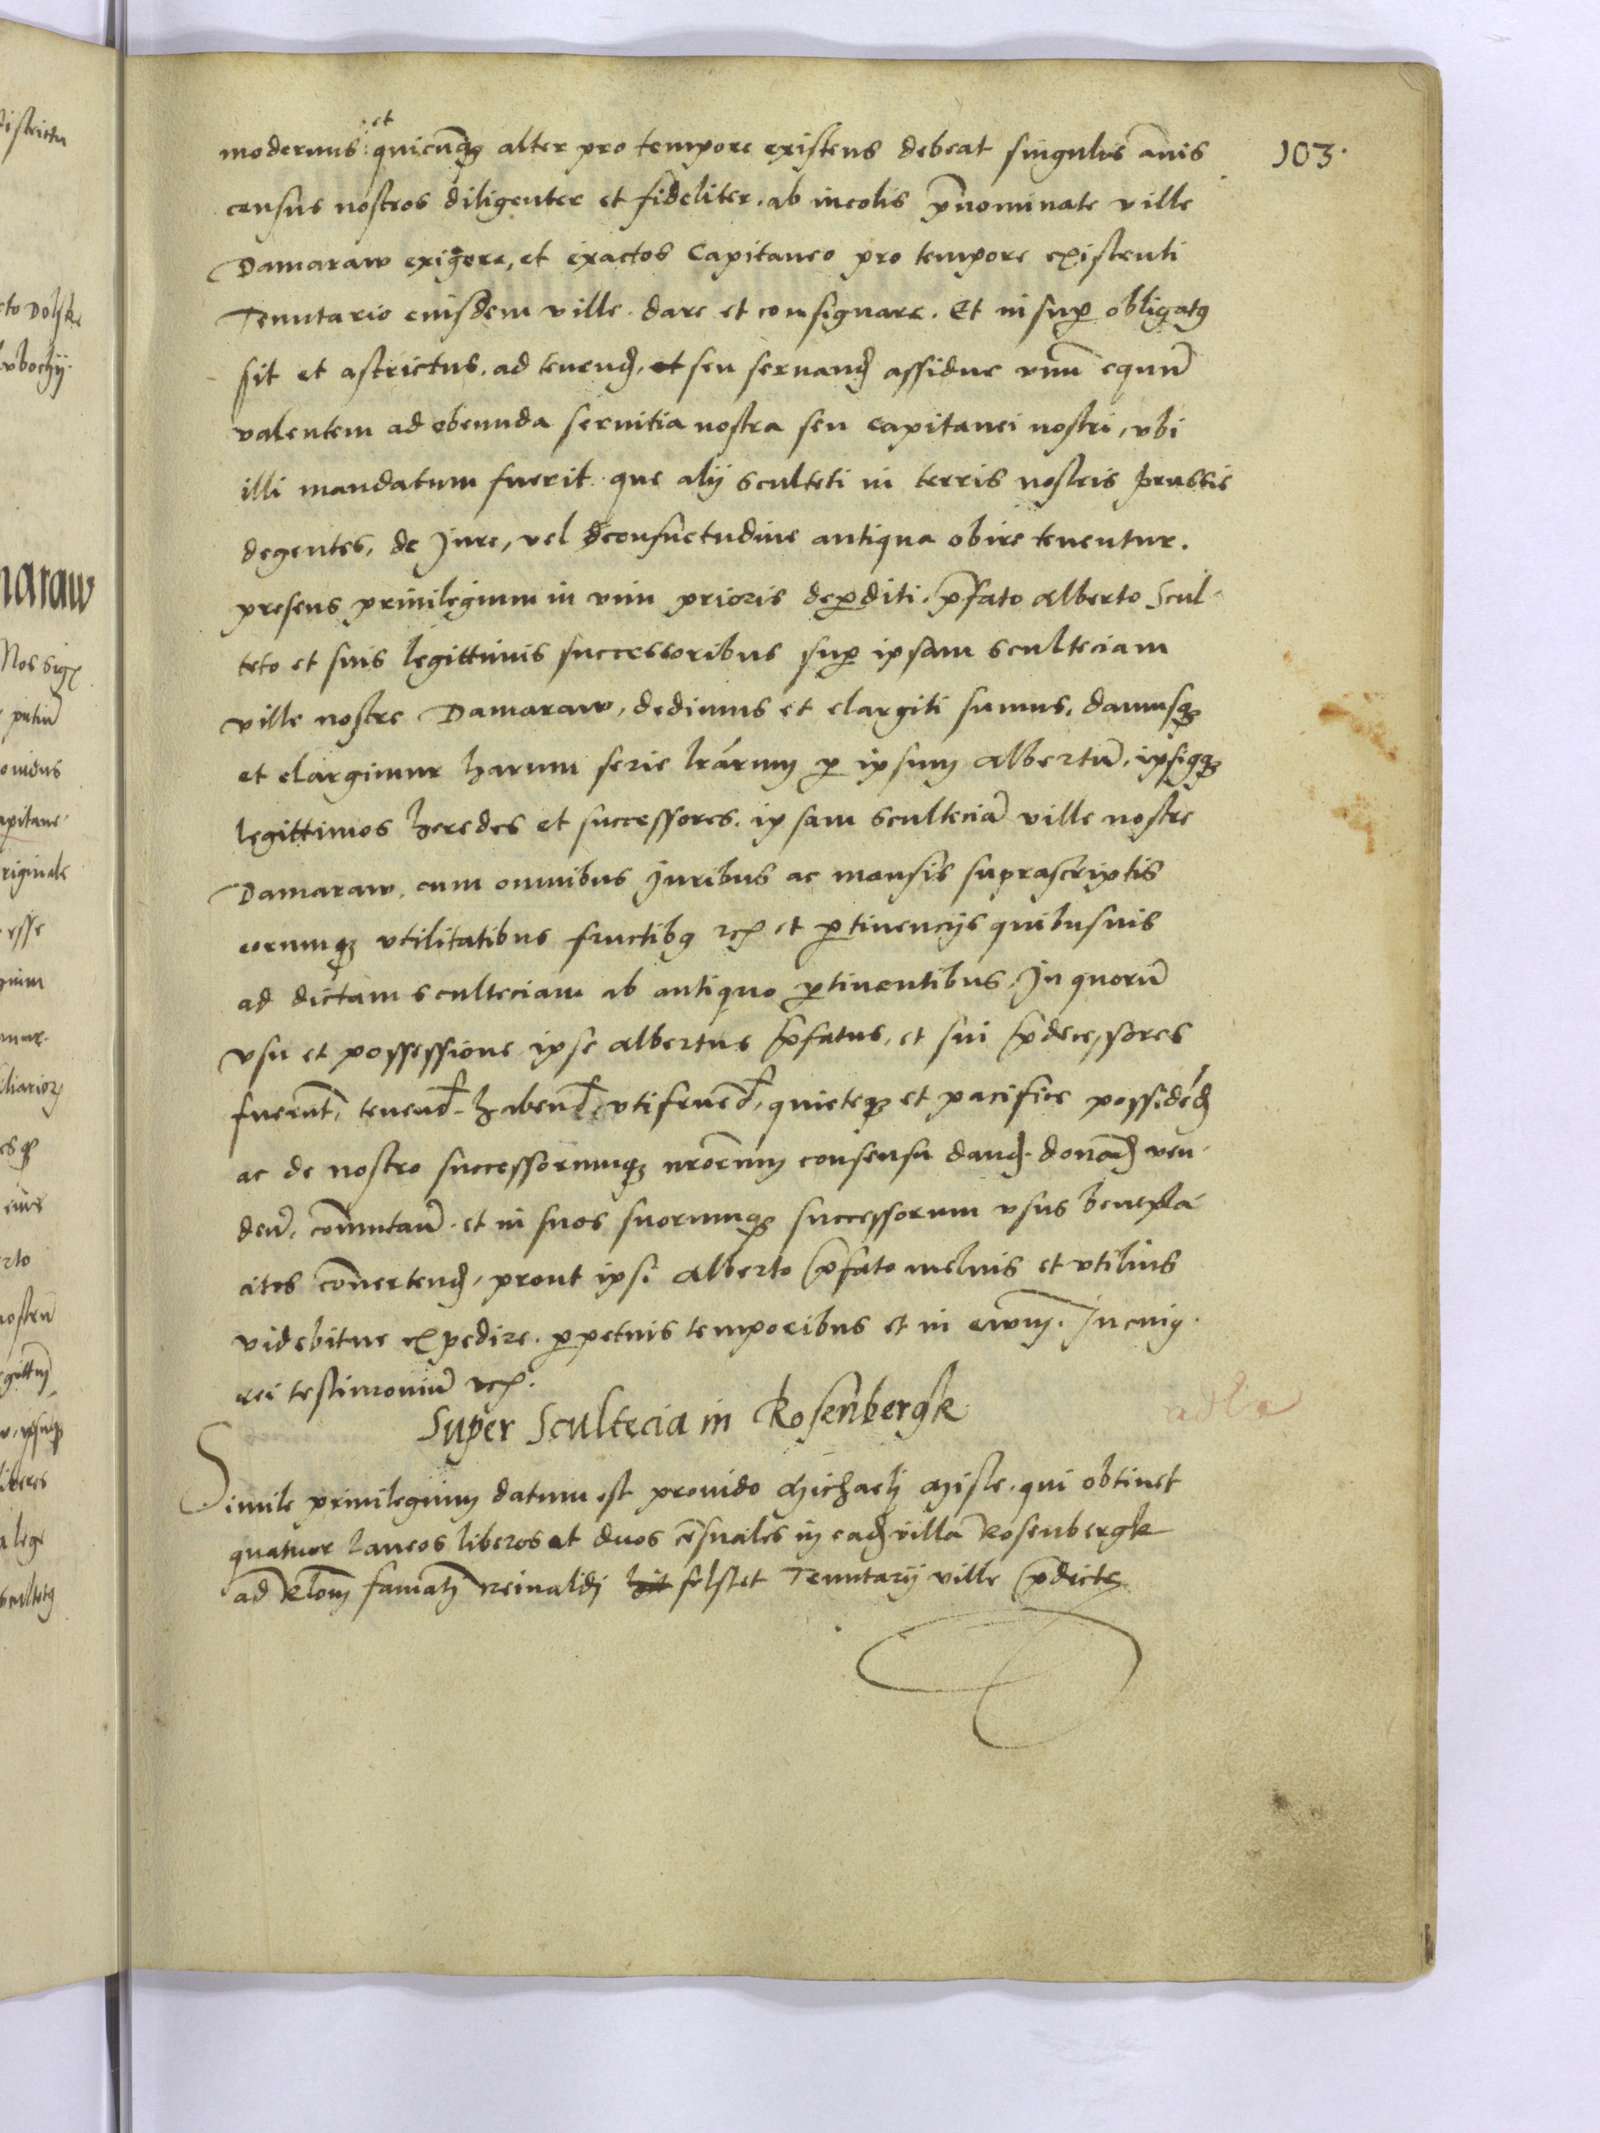 103.
et
modernus quicunq alter pro tempore existens debeat singulis annis
census nostros diligenter et fideliter. ab incolis pnominate ville
Damaraw exigere, et exactos Capitaneo pro tempore existenti
Tenutario eiusdem ville. dare et consignare. Et insup obligatq
sit et astrictus. ad tenend, et seu seruand assidue vnu equu
valentem ad obeunda seruitia nostra seu capitanei nostri, vbi
illi mandatum fuerit. que alij sculteti in terris nostris prussie
degentes, de Jure, vel deconsuetudine antiqua obire tenentur.
presens priuilegium in vim prioris depditi. pfato Alberto Scul-
teto et suis legittimis successoribus sup ipsam sculteciam
ville nostre Damaraw, dedimus et elargiti sumus, damusq
et elargimur harum serie lrarum p ipsum Albertu, ipsiqq
legittimos heredes et successores. ipsam sculteciā ville nostre
Damaraw. cum omnibus Juribus ac mansis suprascriptis
eorumq vtilitatibus fructibq rc et ptinencijs quibusuis
ad dictam sculteciam ab antiquo ptinentibus. In quorū
vsu et possessione ipse Albertus pfatus, et sui pdecessores
fuerunt, tenend. habend vtifruend, quieteq et pacifice possidēd
ac de nostro successorumq nrorum consensu dand. donād ven-
den, commutan. et in suos suorumq successorum vsus benepla-
citos conuertend, prout ipsi Alberto pfato melius et vtilius
videbitur expedire. ppetuis temporibus et in ewm. In cuiq.
rei testimoniū rc.
Super Scultecia in Rosenbergk
Simile priuilegium datum est prouido Michaeli Misle. qui obtinet
quatuor Laneos liberos et duos censuales in ead villa Rosenbergk
ad Rlom famati Reinaldi felstet Tenutarij ville pdicte